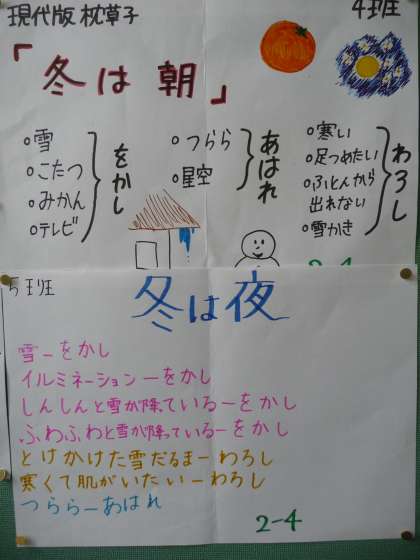 現代版 枕草子
4班
「冬は 朝」
○雪
○こたつ
○みかん
○テレビ
をかし
○つらら
○星空
あはれ
○寒い
○足つめたい
○ふとんから
出れない
○雪かき
わろし
2-4
5班
冬は夜
雪ーをかし
イルミネーションーをかし
しんしんと雪が降っているーをかし
ふわふわと雪が降っているーをかし
とけかけた雪だるまーわろし
寒くて肌がいたいーわろし
つららーあはれ
2-4